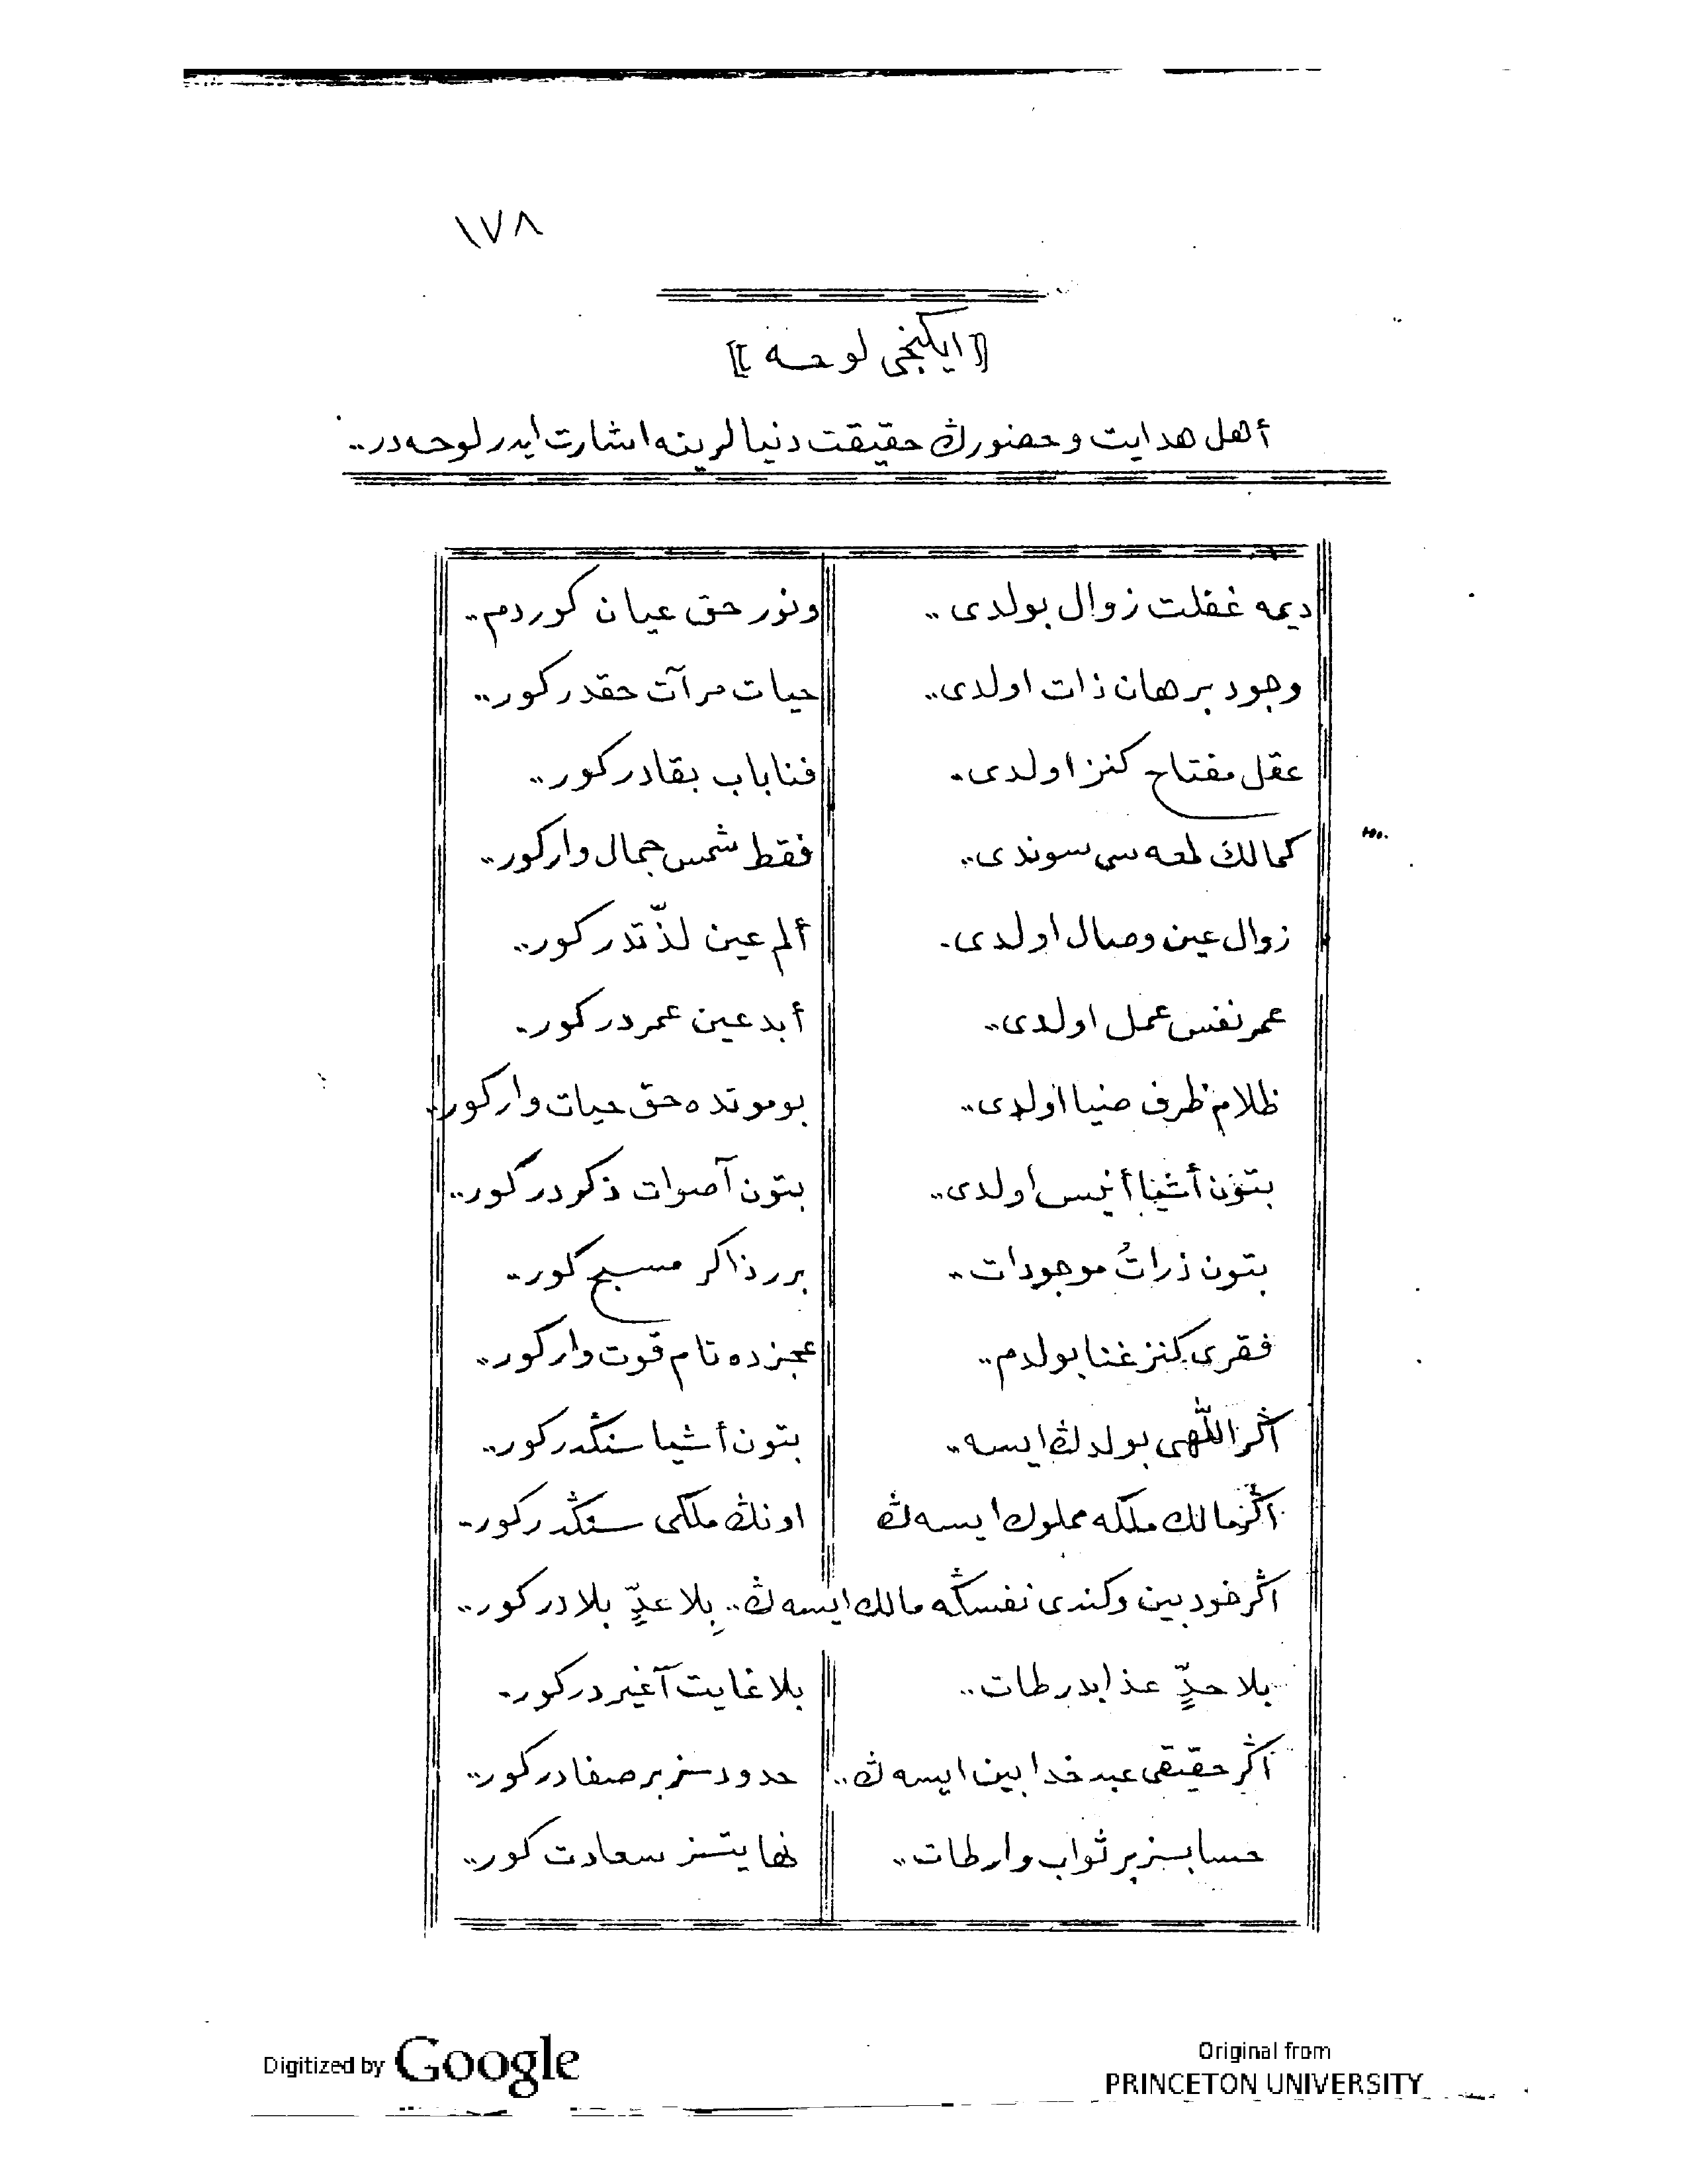 ١٧٨
[[ ايكنجى لوحه ]]
أهل هدايت وحضورڭ حقيقت دنيالرينه اشارت ايدر لوحه در..
ديمه غفلت زوال بولدى.. ونور حق عيان كوردم..
وجود برهان ذات اولدى.. حيات مرآت حقدر كور..
عقل مفتاح كنز اولدى. فنا باب بقادر كور..
كمالك لمعه سى سوندى.. فقط شمس جمال وار كور..
زوال عين وصال اولدى. ألم عين لذّتدر كور..
عمر نفس عمل اولدى.. أبد عين عمردر كور.
ظلام ظرف ضيا اولدى.. بو موتده حق حيات وار كور..
بتون أشيا أنيس اولدى.. بتون آصوات ذكردر كور..
بتون ذراتُ موجودات.. برر ذاكر مسبح كور..
فقرى كنز غنا بولدم.. عجزده تام قوت وار كور..
اڭر اللّهى بولدڭ ايسه.. بتون أشيا سنڭدر كور..
اڭر مالك ملكه مملوك ايسه ڭ اونڭ ملكى سنڭدر كور..
اڭر خودبين وكندى نفسڭه مالك ايسه ڭ.. بِلا عدٍّ بلادر كور..
بلا حدٍّ عذابدر طات.. بلا غايت آغيردر كور.
اڭر حقيقى عبد خدا بين ايسه ڭ.. حدودسز بر صفادر كور..
حسابسز بر ثواب وار طات.. نهايتسز سعادت كور..
Digitized by Google
Original from
PRINCETON UNIVERSITY